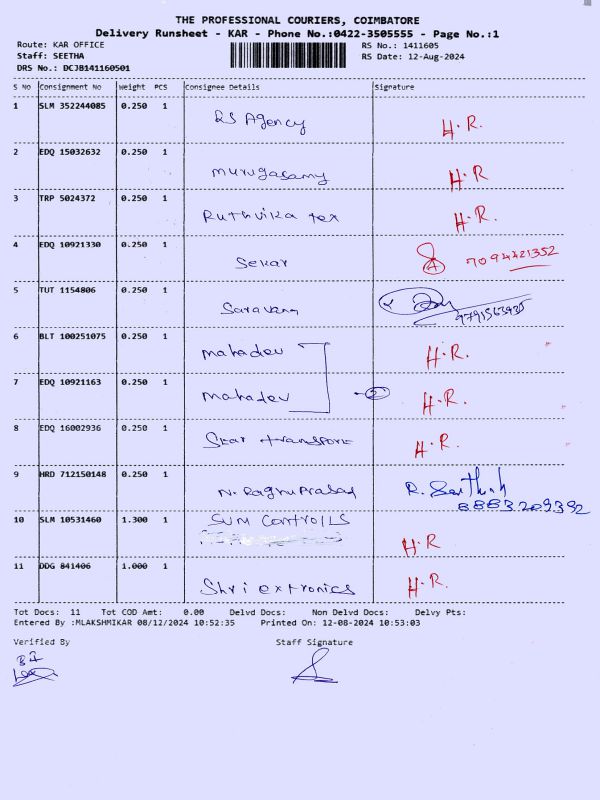 THE PROFESSIONAL COURIERS, COIMBATORE
Delivery Runsheet - KAR - Phone No.:0422-3505555 - Page No.:1
Route: KAR OFFICE RS No.: 1411605
Staff: SEETHA RS Date: 12-Aug-2024
DRS No.: DCJB141160501
S No Consignment No Weight PCS Consignee Details Signature
1 SLM 352244085 0.250 1 RS Agency H.R.
2 EDQ 15032632 0.250 1 murugasamy H.R
3 TRP 5024372 0.250 1 Ruthvika tex H.R.
4 EDQ 10921330 0.250 1 Sekar 7094421352
5 TUT 1154806 0.250 1 Saravana
6 BLT 100251075 0.250 1 mahadev H.R.
7 EDQ 10921163 0.250 1 mahadev H.R.
8 EDQ 16002936 0.250 1 transport H.R.
9 HRD 712150148 0.250 1 N. RaghuPrasad R.
10 SLM 10531460 1.300 1 SUM Controlls H.R
11 DDG 841406 1.000 1 Shri extronics H.R.
Tot Docs: 11 Tot COD Amt: 0.00 Delvd Docs: Non Delvd Docs: Delvy Pts:
Entered By :MLAKSHMIKAR 08/12/2024 10:52:35 Printed On: 12-08-2024 10:53:03
Verified By Staff Signature